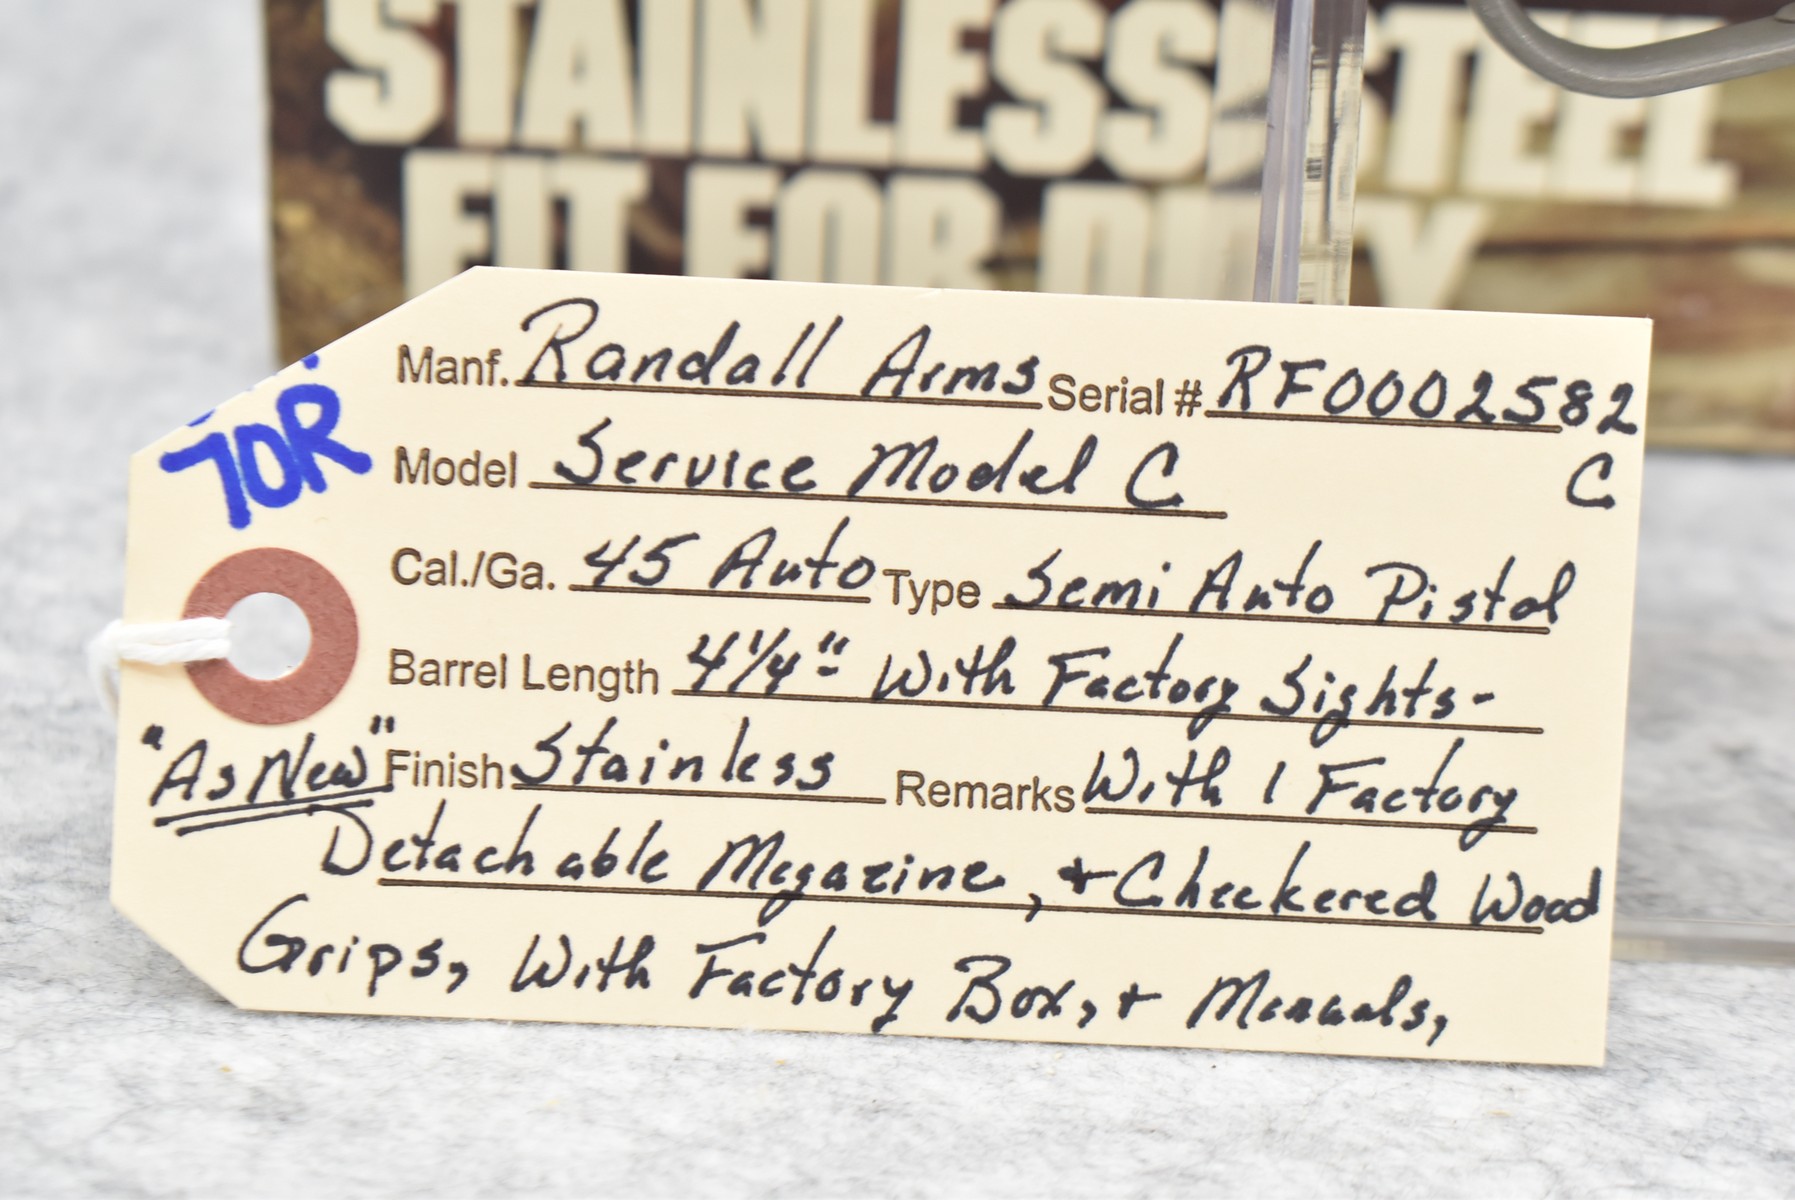 STAINLESS STEEL
FIT FOR DUTY
Manf. Randall Arms Serial # RF0002582
C
70R
Model Service Model C
Cal./Ga. 45 Auto Type Semi Auto Pistol
Barrel Length 4 1/4" With Factory Sights-
"As New" Finish Stainless Remarks With 1 Factory
Detachable Magazine, + Checkered Wood
Grips, With Factory Box, + Manuals,